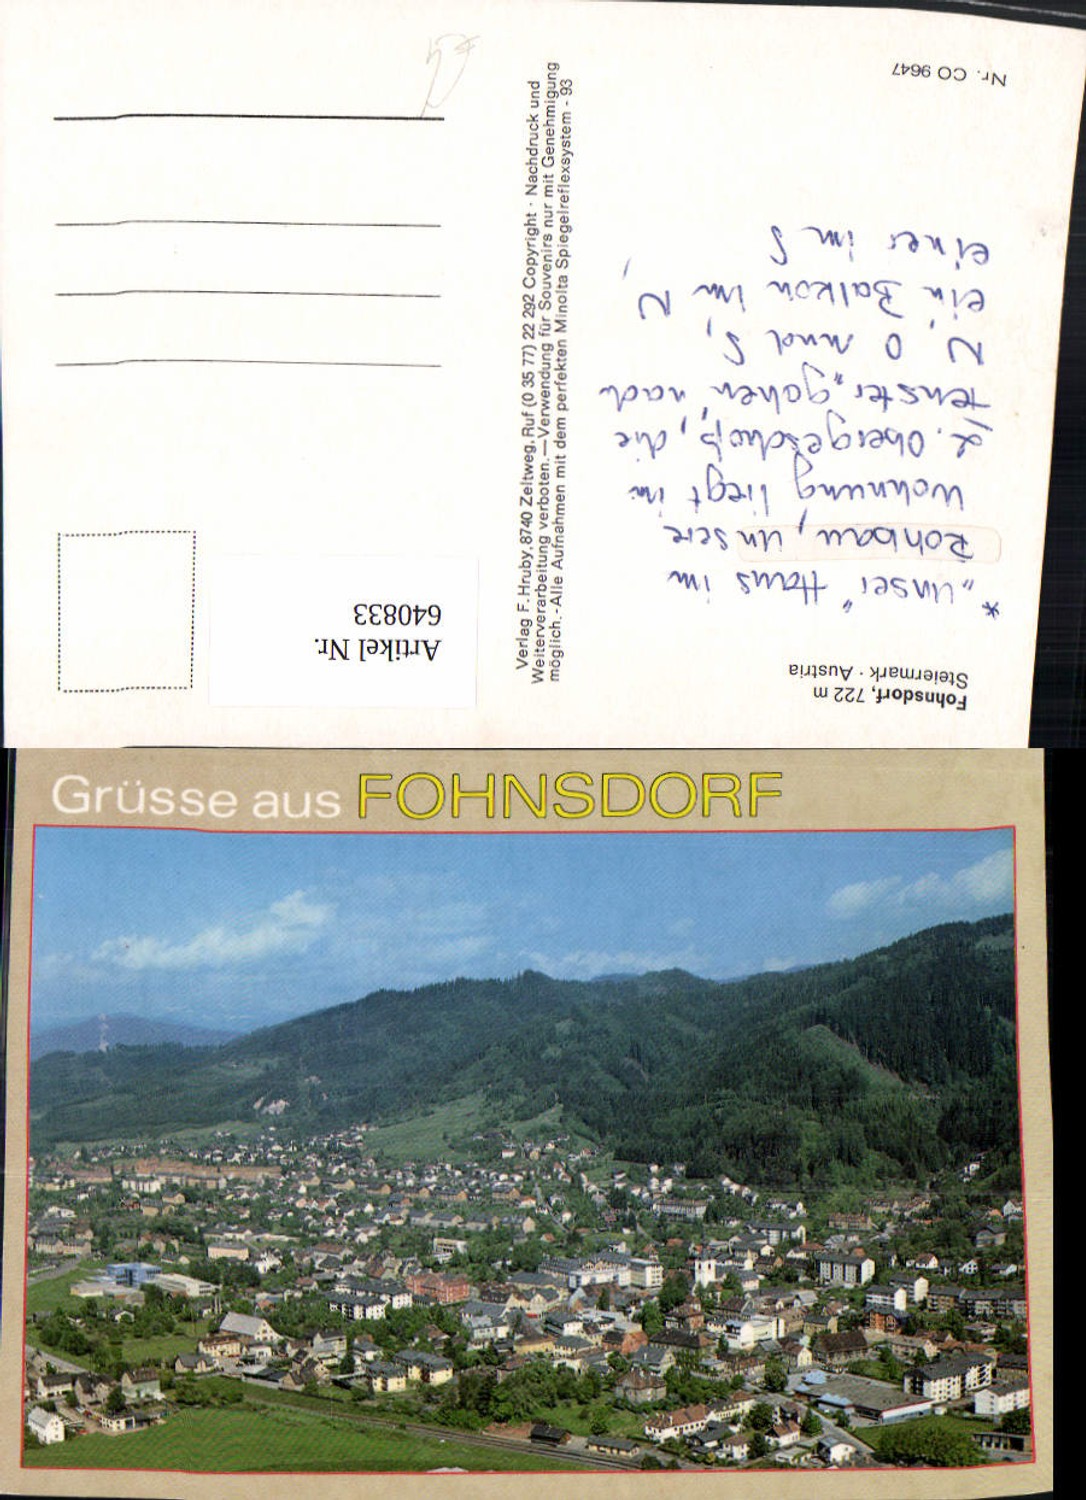 Fohnsdorf, 722 m
Steiermark · Austria
* „Unser" Haus im
Rohbau, unsere
Wohnung liegt im
2. Obergeschoß, die
Fenster „gehen" nach
N, O und S,
ein Balkon im N,
einer im S
Nr. CO 9647
Verlag F. Hruby, 8740 Zeltweg, Ruf (0 35 77) 22 292 Copyright · Nachdruck und
Weiterverarbeitung verboten.—Verwendung für Souvenirs nur mit Genehmigung
möglich. - Alle Aufnahmen mit dem perfekten Minolta Spiegelreflexsystem - 93
Artikel Nr.
640833
Grüsse aus FOHNSDORF